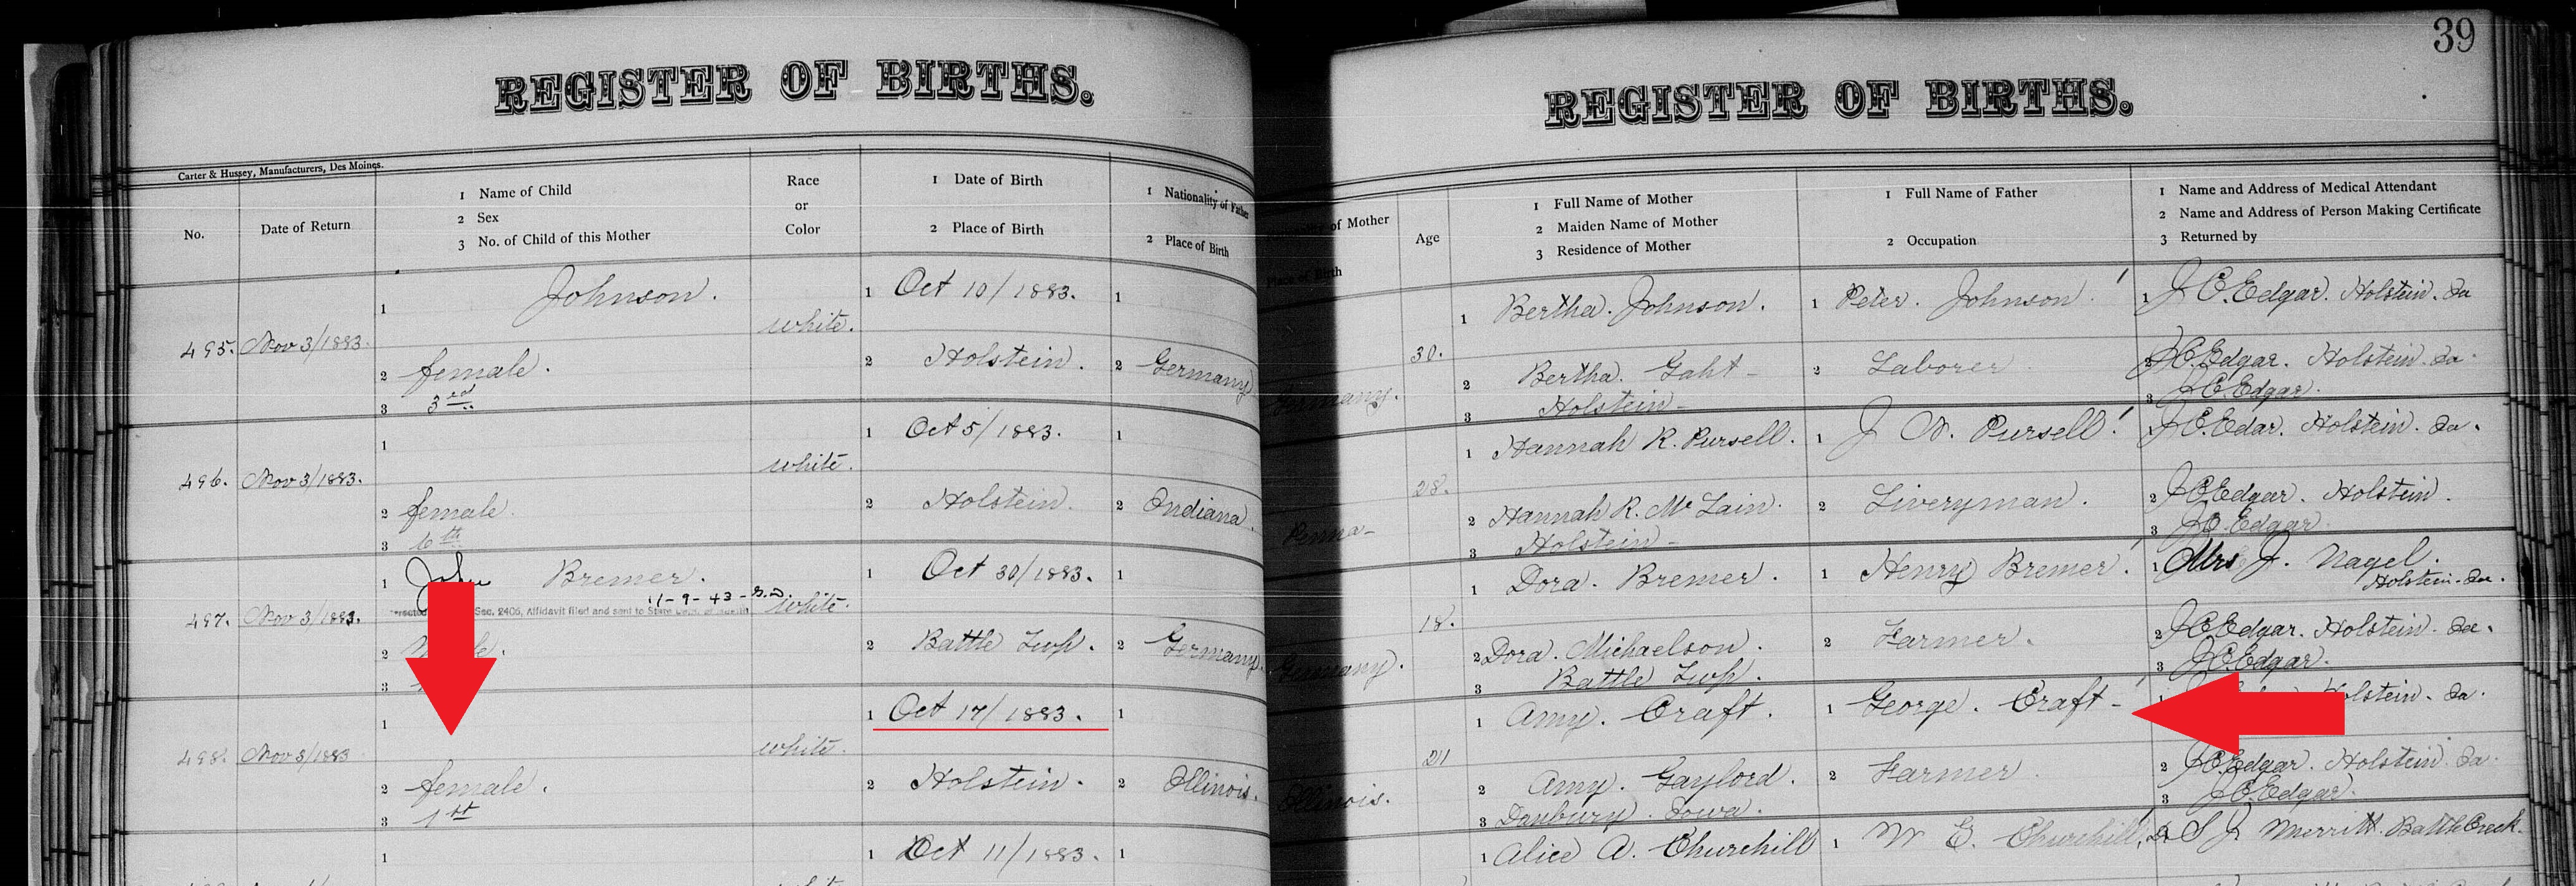 39
REGISTER OF BIRTHS. REGISTER OF BIRTHS.
Carter & Hussey, Manufacturers, Des Moines.
No.
Date of Return
1 Name of Child
2 Sex
3 No. of Child of this Mother
Race
or
Color
1 Date of Birth
2 Place of Birth
1 Nationality of Father
2 Place of Birth
of Mother
Place of Birth
Age
1 Full Name of Mother
2 Maiden Name of Mother
3 Residence of Mother
1 Full Name of Father
2 Occupation
1 Name and Address of Medical Attendant
2 Name and Address of Person Making Certificate
3 Returned by
495. Nov 3/1883.
1 Johnson.
2 female.
3 3rd
white.
1 Oct 10/1883.
2 Holstein.
1
2 Germany
Germany.
30.
1 Bertha. Johnson.
2 Bertha. Gaht -
3 Holstein -
1 Peter. Johnson.
2 Laborer
1 J C. Edgar. Holstein. Ia
2 J C. Edgar. Holstein. Ia.
3 J C Edgar.
496. Nov 3/1883.
1
2 female.
3 6th
white.
1 Oct 5/1883.
2 Holstein.
1
2 Indiana.
Penna -
28.
1 Hannah R. Pursell.
2 Hannah R. Mc Lain.
3 Holstein -
1 J W. Pursell.
2 Liveryman.
1 J C. Edar. Holstein. Ia.
2 J C Edgar. Holstein.
3 J C. Edgar
497. Nov 3/1883.
1 John Bremer.
11-9-43-
Sec. 2406, Affidavit filed and sent to State
2
3
white.
1 Oct 30/1883.
2 Battle Twp.
1
2 Germany.
Germany.
18.
1 Dora. Bremer.
2 Dora. Michaelson.
3 Battle Twp.
1 Henry Bremer.
2 Farmer.
1 Mrs J. Nagel.
Holstein. Ia.
2 J C Edgar. Holstein. Ia.
3 J C. Edgar.
498. Nov 3/1883
1
2 female.
3 1st
white.
1 Oct 17/1883.
2 Holstein.
1
2 Illinois.
Illinois.
21
1 Amy. Craft.
2 Amy. Gaylord.
3 Danbury. Iowa.
1 George. Craft -
2 Farmer
1 Holstein. Ia.
2 J C. Edgar. Holstein Ia.
3 J C. Edgar.
1
1 Oct 11/1883.
1
1 Alice A. Churchill
1 W E. Churchill,
S J Merritt. Battle Creek.